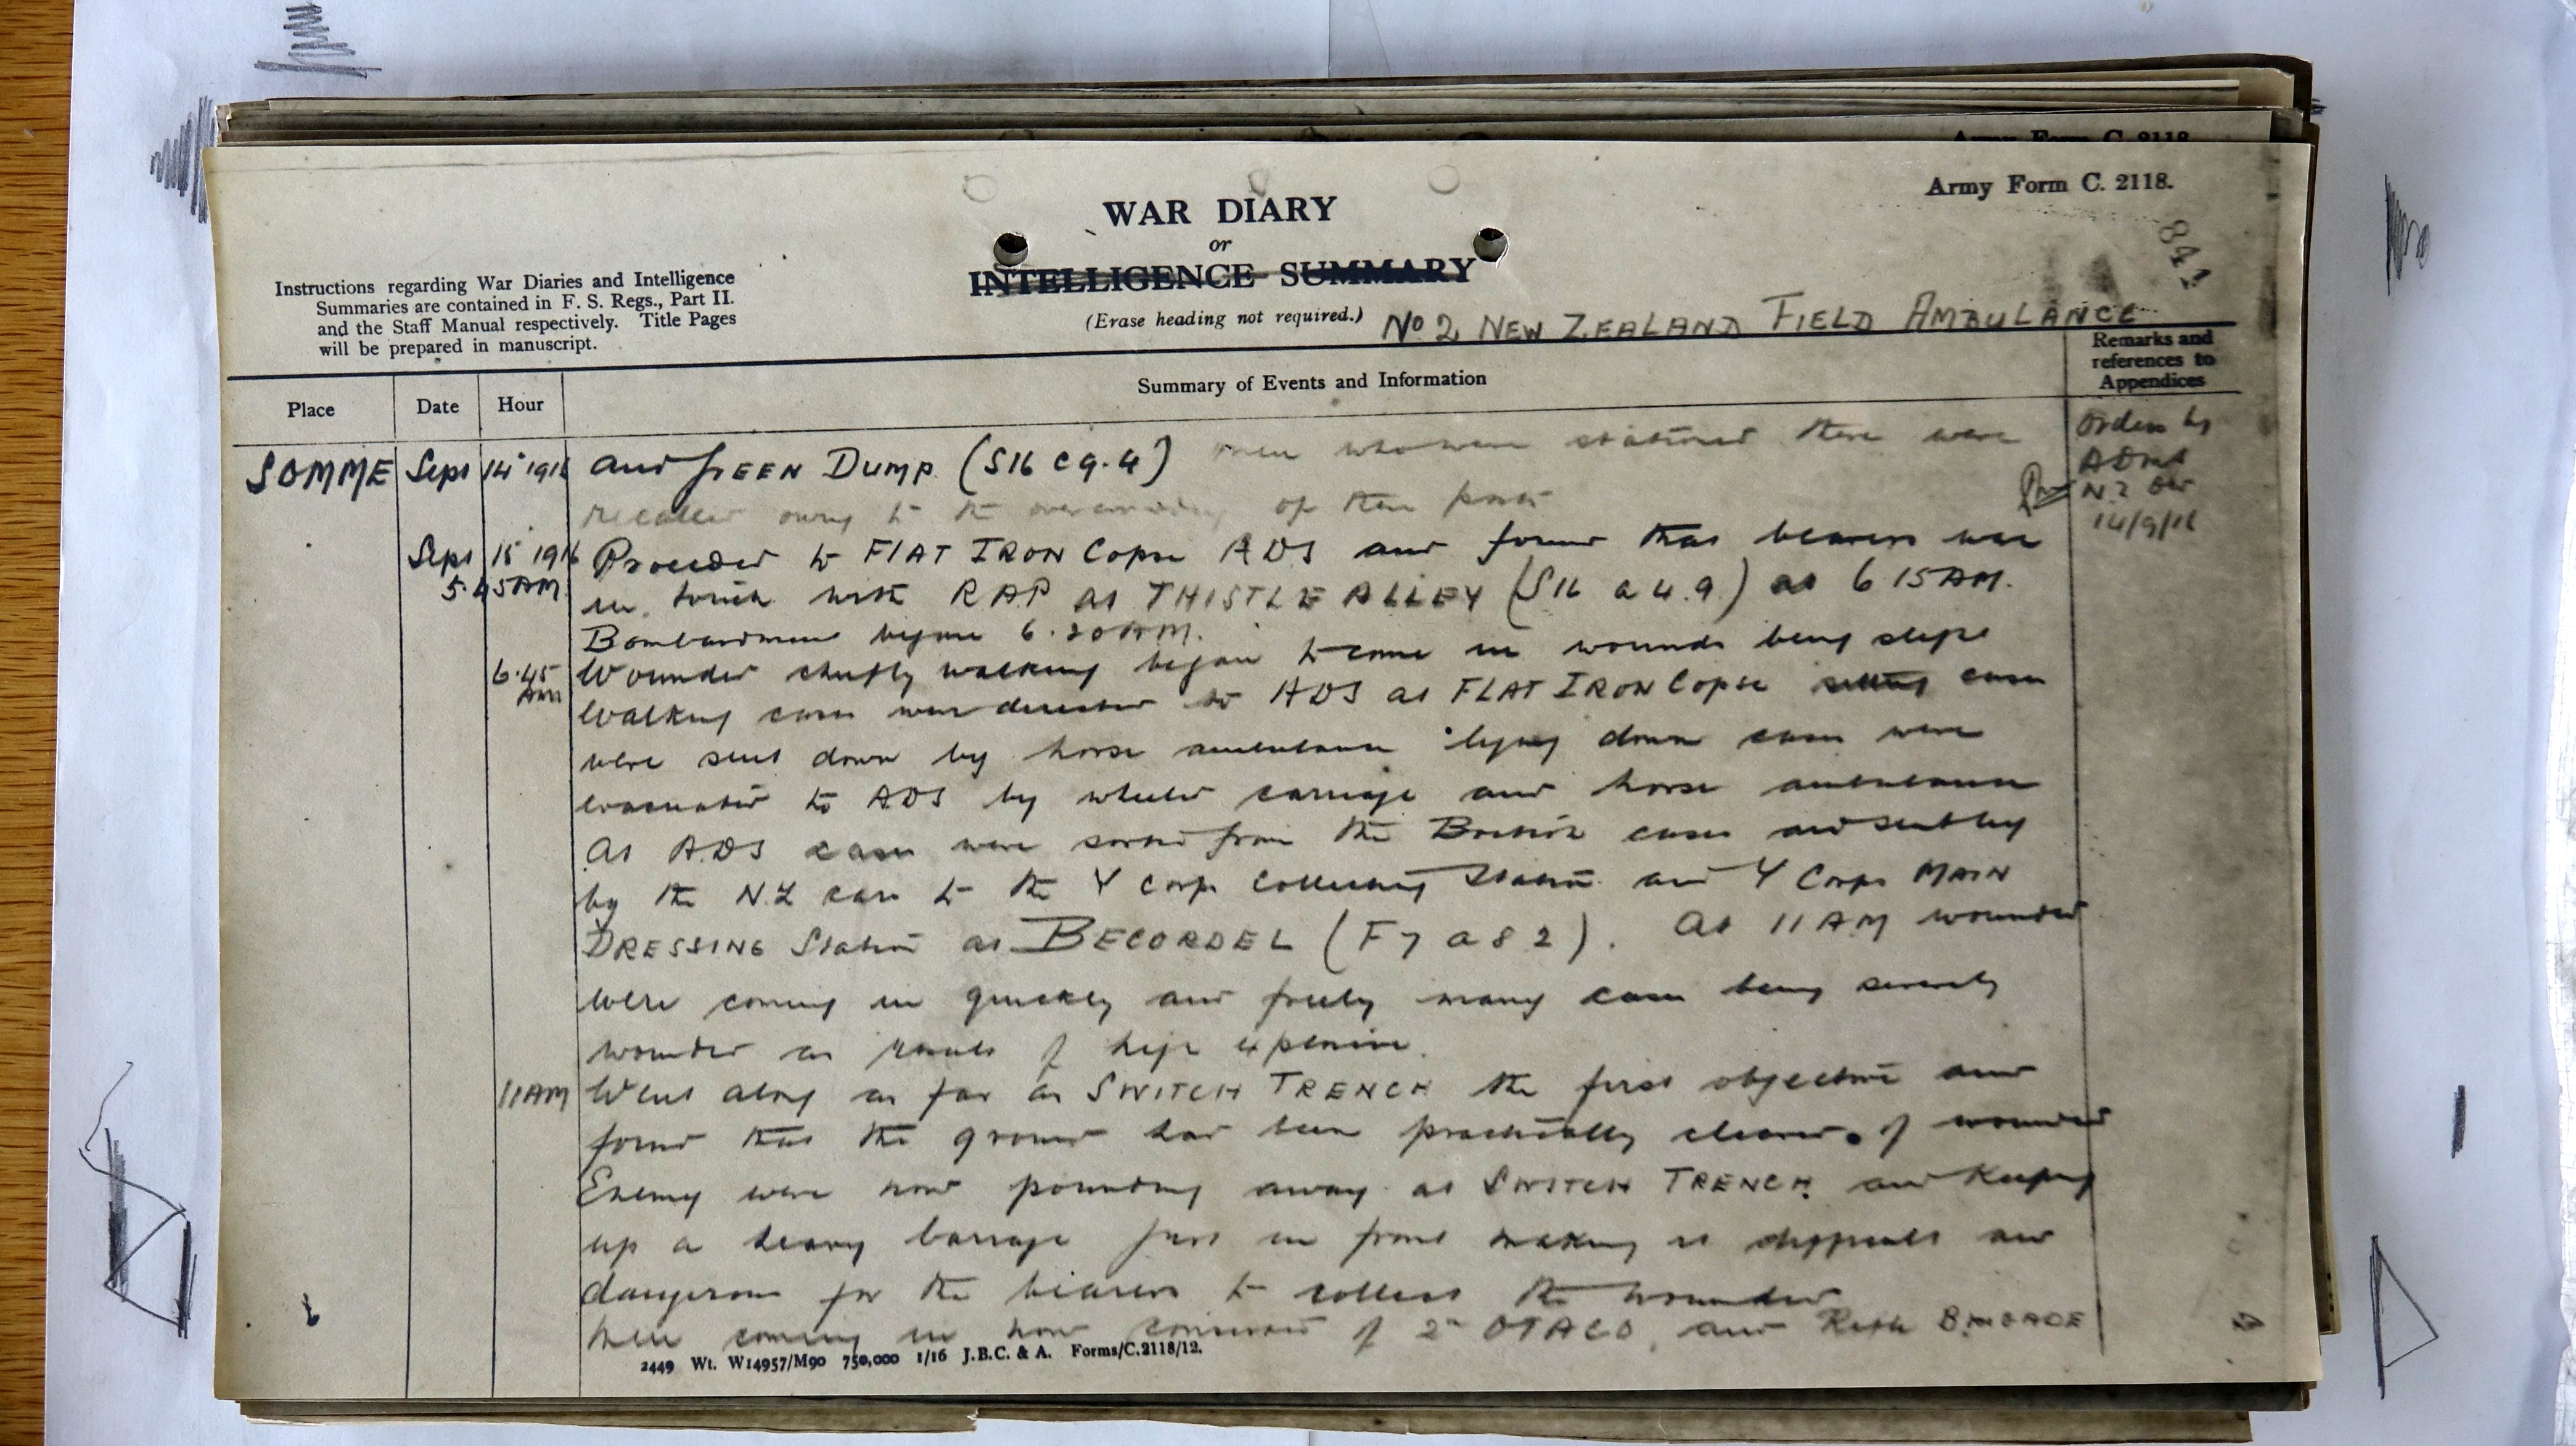 Army Form C. 2118
Army Form C. 2118.
841
WAR DIARY
or
INTELLIGENCE SUMMARY
(Erase heading not required.)
Instructions regarding War Diaries and Intelligence
Summaries are contained in F. S. Regs., Part II.
and the Staff Manual respectively. Title Pages
will be prepared in manuscript.
No 2 NEW ZEALAND FIELD AMBULANCE
Place
Date
Hour
Summary of Events and Information
Remarks and
references to
Appendices
SOMME Sept 14 1916 and GREEN DUMP (S16 c 9.4) men who were stationed there were
recalled owing to the overcrowding of these posts
Orders by
ADMS
N Z Div
14/9/16
Sept 15 1916 Proceeded to FLAT IRON Copse ADS and found that bearers were
5.45AM in touch with RAP at THISTLE ALLEY (S16 a 4.9) at 6 15AM.
Bombardment began 6.20AM.
6.45 AM Wounded chiefly walking began to come in wounds being slight
Walking cases were directed to ADS at FLAT IRON Copse sitting cases
were sent down by horse ambulance lying down cases were
evacuated to ADS by wheeled carriage and horse ambulance
At ADS cases were sorted from the British cases and sent by
by the N.Z cars to the Corps Collecting Station and Corps MAIN
DRESSING Station at BECORDEL (F 7 a 8 2). At 11 AM wounded
were coming in quickly and freely many cases being severely
wounded as results of high explosive.
11AM Went along as far as SWITCH TRENCH the first objective and
found that the ground had been practically cleared of wounded
Enemy were now pounding away at SWITCH TRENCH and keeping
up a heavy barrage just in front making it difficult and
dangerous for the bearers to collect the wounded
coming in now consisted of 2nd OTAGO and Rifle BRIGADE
2449 Wt. W14957/M90 750,000 1/16 J.B.C. & A. Forms/C.2118/12.